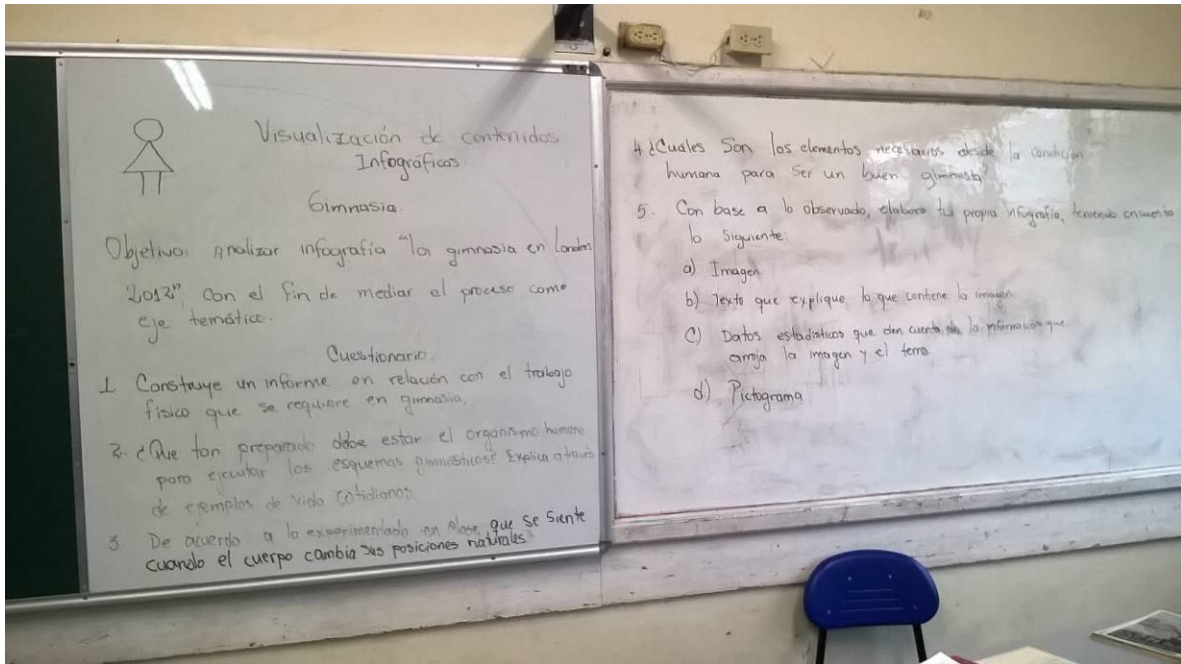 Visualización de contenidos
Infográficos.
Gimnasia.
Objetivo: Analizar infografía "la gimnasia en Londres
2012", con el fin de mediar el proceso como
eje temático.
Cuestionario.
1 Construye un informe en relación con el trabajo
físico que se requiere en gimnasia,
2. ¿Que tan preparado debe estar el organismo humano
para ejecutar los esquemas gimnásticos? Explica através
de ejemplos de vida cotidianos.
3 De acuerdo a lo experimentado en clase, que se siente
cuando el cuerpo cambia sus posiciones naturales.
4 ¿Cuales Son los elementos necesarios desde la condición
humana para ser un buen gimnasta?
5. Con base a lo observado, elabora tu propia infografía, teniendo encuenta
lo Siguiente:
a) Imagen
b) Texto que explique lo que contiene la imagen
c) Datos estadísticos que den cuenta la información que
arroja la imagen y el tema.
d) Pictograma